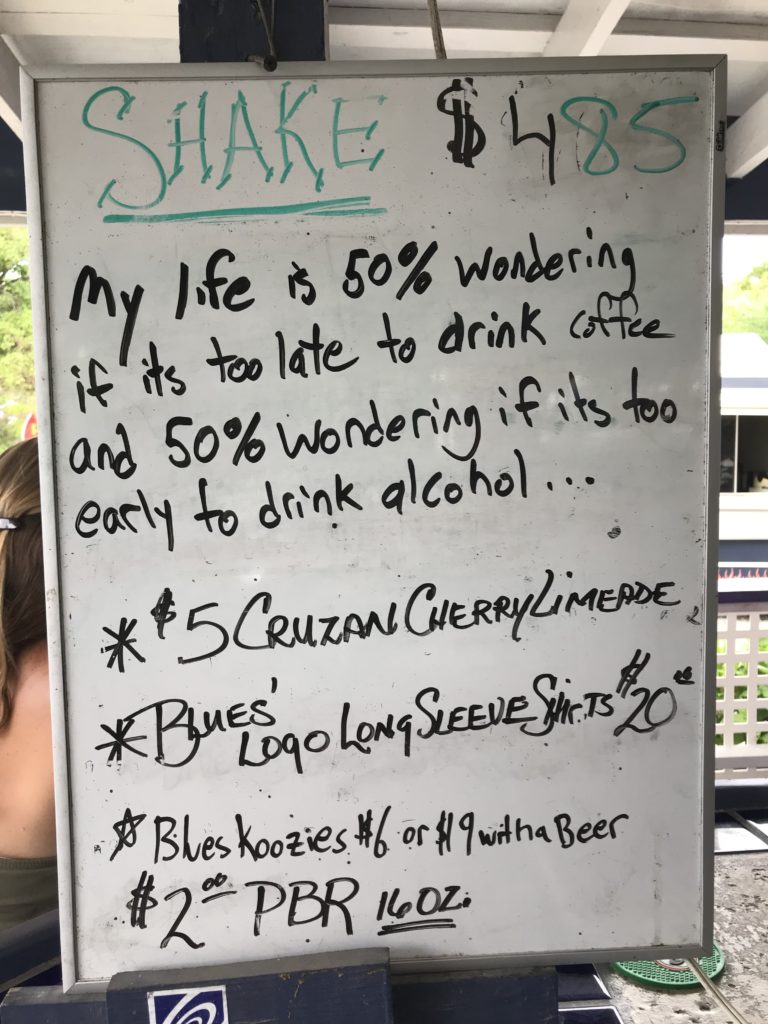 SHAKE $ 485
My life is 50% wondering
if its too late to drink coffee
and 50% wondering if its too
early to drink alcohol...
* $5 CRUZAN CHERRY LIMEADE
* BLUES' LOGO LONG SLEEVE SHIRTS $20 00
☆ Blues Koozies $6 or $9 with a Beer
$2.00 PBR 16 OZ.